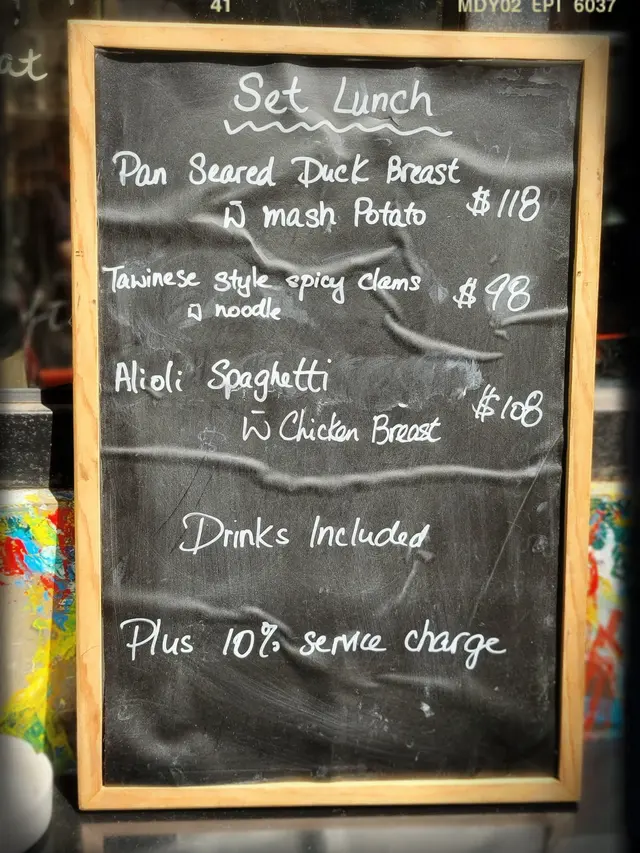 41
MDY02 EPI 6037
at
Set Lunch
Pan Seared Duck Breast
w̄ mash Potato $118
Tawinese style spicy clams $98
w̄ noodle
Alioli Spaghetti
w̄ Chicken Breast $108
Drinks Included
Plus 10% service charge